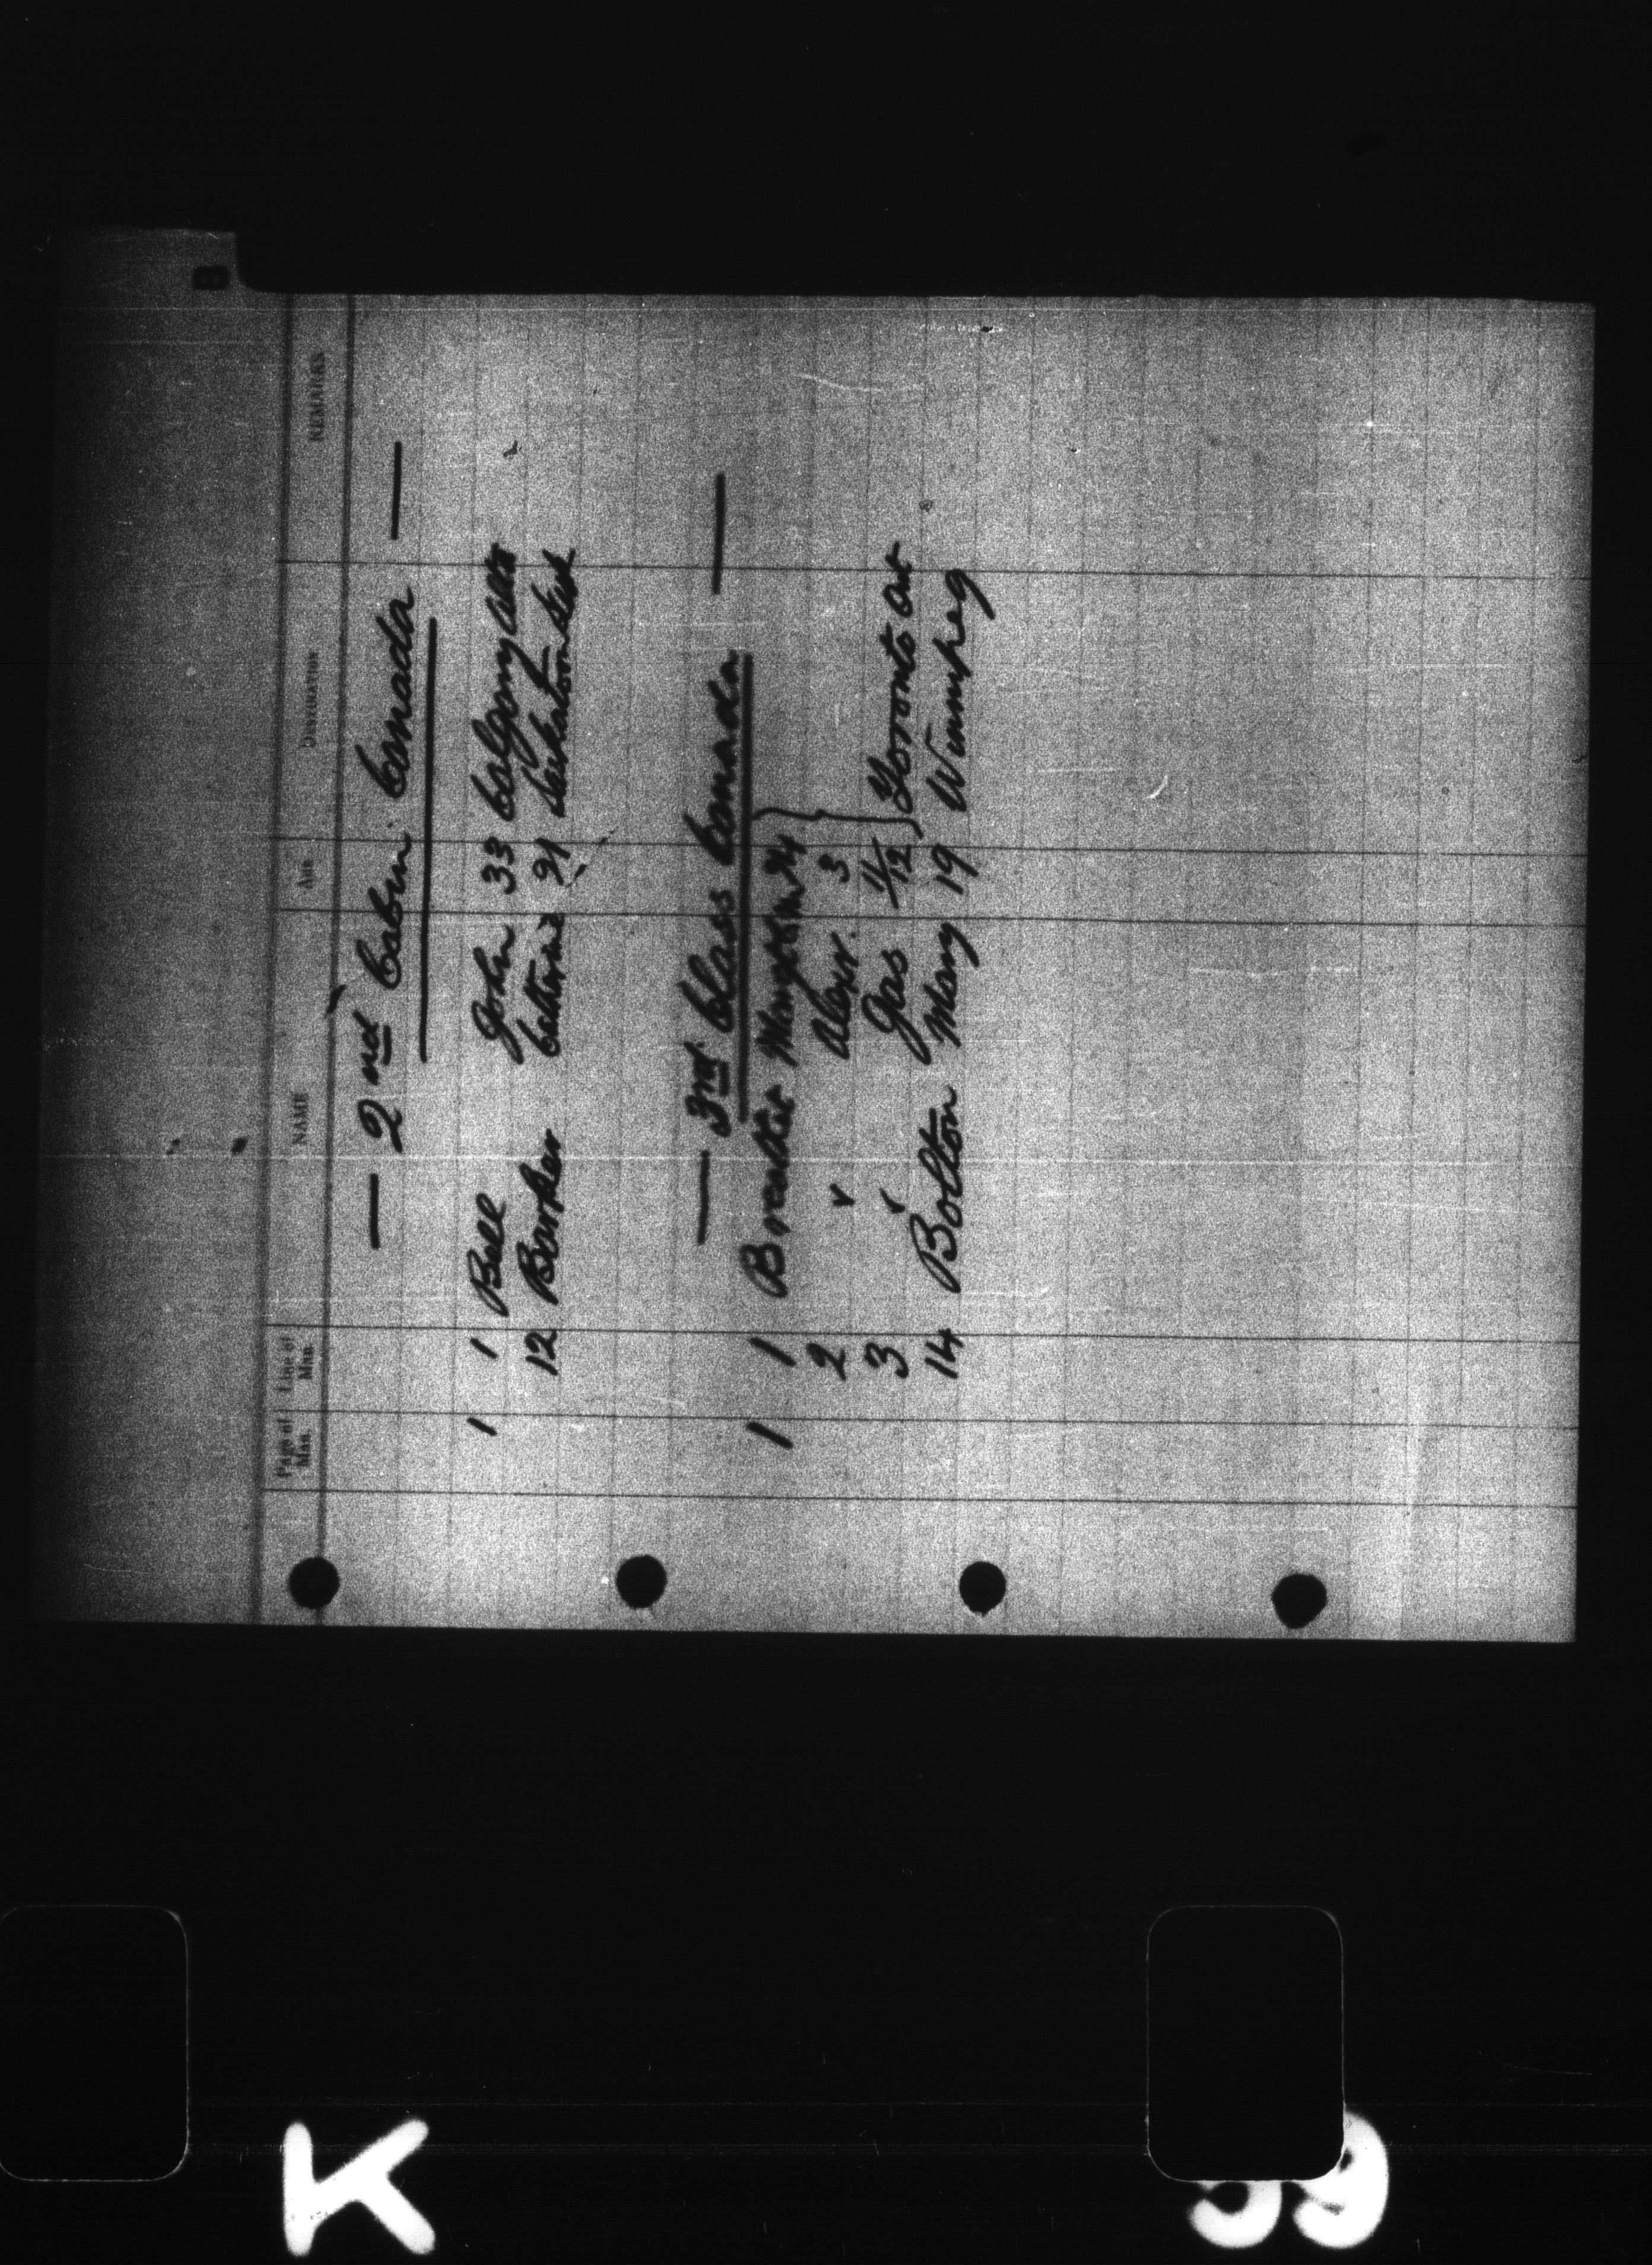 B
Page of Man. Line of Man. NAME AGE DESTINATION REMARKS
— 2nd Cabin Canada —
1 1 Bell John 33 Calgary Alta
12 Barker Catherine 21 Saskatoon Sask
— 3rd Class Canada —
1 1 24
2 " Alexr. 3
3 " Jas 1/12 } Toronto Ont
14 Bolton Mary 19 Winnipeg
K